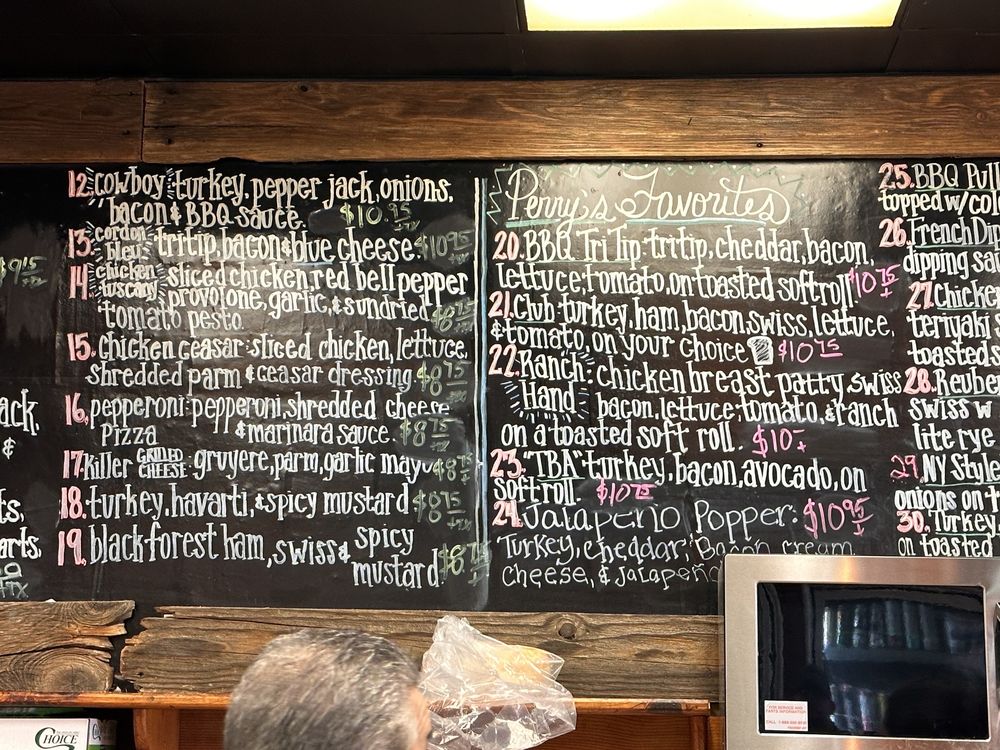 $9.15
ack,
&
ts,
arts,
12. cowboy: turkey, pepper jack, onions,
bacon & BBQ sauce. $10.95
13. cordon bleu: tritip, bacon & blue cheese. $10.95
14. chicken tuscany sliced chicken, red bell pepper
provolone, garlic, & sundried
tomato pesto. $8.75
15. chicken ceasar: sliced chicken, lettuce,
shredded parm & ceasar dressing. $8.75
16. pepperoni: pepperoni, shredded cheese
Pizza & marinara sauce. $8.75
17. killer GRILLED CHEESE: gruyere, parm, garlic mayo $8.75
18. turkey, havarti, & spicy mustard $8.75
19. black forest ham, swiss & spicy
mustard $8.75
Perry's Favorites
20. BBQ Tri Tip- tritip, cheddar, bacon,
lettuce, tomato, on toasted soft roll $10.75
21. Club- turkey, ham, bacon, swiss, lettuce,
& tomato, on your choice $10.75
22. Ranch Hand: chicken breast patty, swiss
bacon, lettuce, tomato, & ranch
on a toasted soft roll. $10-
23. "TBA"- turkey, bacon, avocado, on
soft roll. $10.75
24. Jalapeno Popper: $10.95
Turkey, cheddar, Bacon, cream
cheese, & Jalapeño
25. BBQ Pull
topped w/ col
26. French Dip
dipping sau
27. Chicken
teriyaki s
toasted s
28. Reube
swiss w
lite rye
29. NY Style
onions on t
30. Turkey
on toasted
CHOICE
FOR SERVICE AND
PARTS INFORMATION